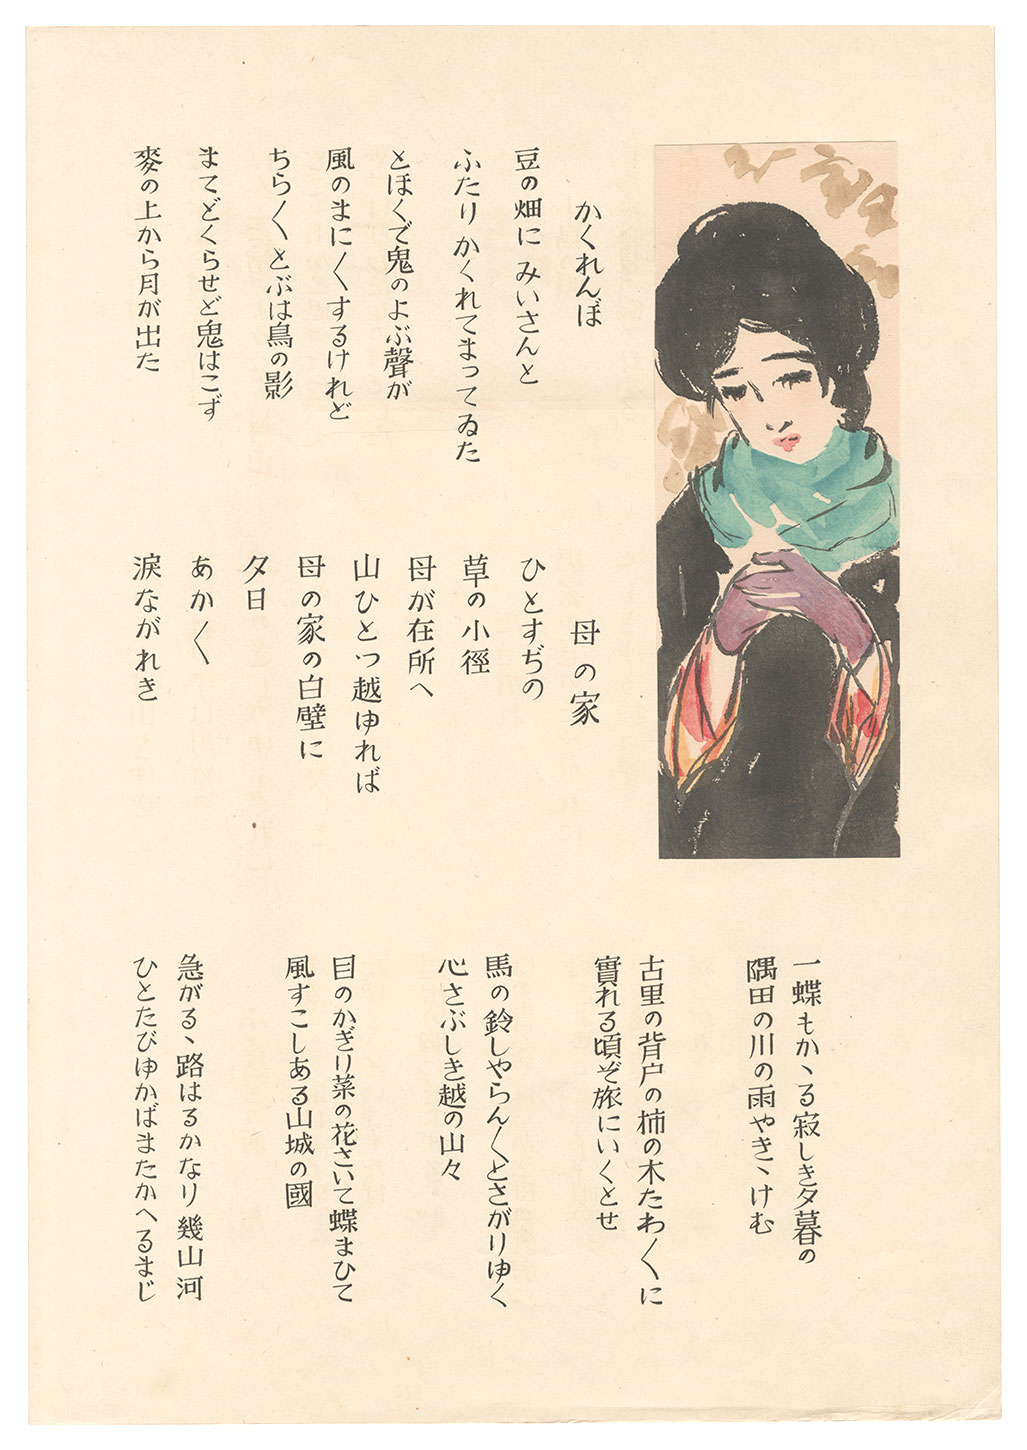 かくれんぼ
豆の畑に みいさんと
ふたりかくれてまってゐた
とほくで鬼のよぶ聲が
風のまに〱するけれど
ちら〱とぶは鳥の影
まてどくらせど鬼はこず
麥の上から月が出た
母の家
ひとすぢの
草の小徑
母が在所へ
山ひとつ越ゆれば
母の家の白壁に
夕日
あか〱
涙ながれき
一蝶もかゝる寂しき夕暮の
隅田の川の雨やきゝけむ
古里の背戸の柿の木たわ〱に
實れる頃ぞ旅にいくとせ
馬の鈴しやらん〱とさがりゆく
心さぶしき越の山々
目のかぎり菜の花さいて蝶まひて
風すこしある山城の國
急がるゝ路はるかなり 幾山河
ひとたびゆかばまたかへるまじ